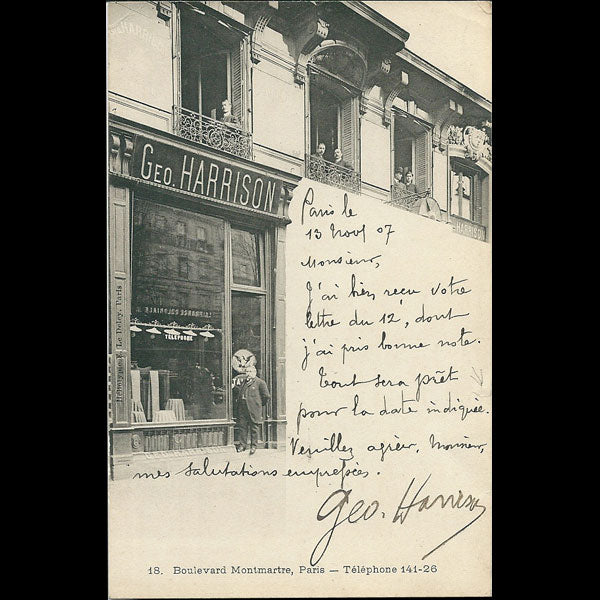 GEO. HARRISON
HARRISON
TÉLÉPHONE
LA FRANCE COLONIALE
Paris le
13 Nov 07
Monsieur,
J'ai bien reçu votre
lettre du 12, dont
j'ai pris bonne note.
Tout sera prêt
pour la date indiquée.
Veuillez agréer, Monsieur,
mes salutations empressées.
Geo. Harrison
Le Deley, Paris
18. Boulevard Montmartre, Paris — Téléphone 141-26